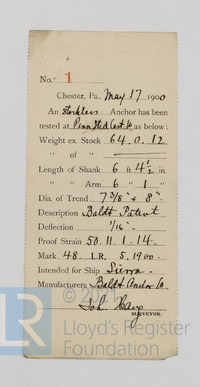 No. 1
Chester, Pa., May 17 1900
An Stockless Anchor has been
tested at Penn Steel Cast. Co as below:
Weight ex. Stock 64. 0. 12
" of "
Length of Shank 6 ft 4½ in.
" " Arm 6 " 1 "
Dia. of Trend 7 3/8" x 8"
Description Baldt Patent
Deflection 1/16"
Proof Strain 50. 11. 1. 14.
Mark 48 LR. 5. 1900.
Intended for Ship Sierra.
Manufacturers Baldt Anchor Co.
SURVEYOR.
LR
Lloyd's Register
Foundation